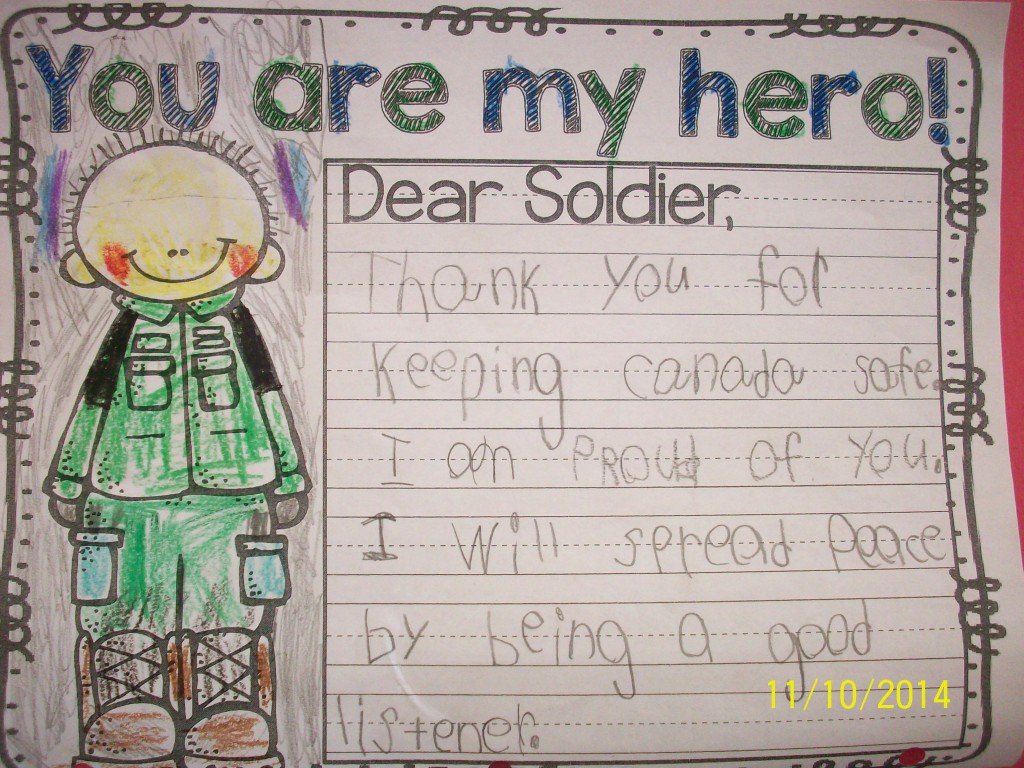 You are my hero!
Dear Soldier,
Thank you for
keeping canada safe.
I am PRoud of you.
I will spread peace
by being a good
listener.
11/10/2014